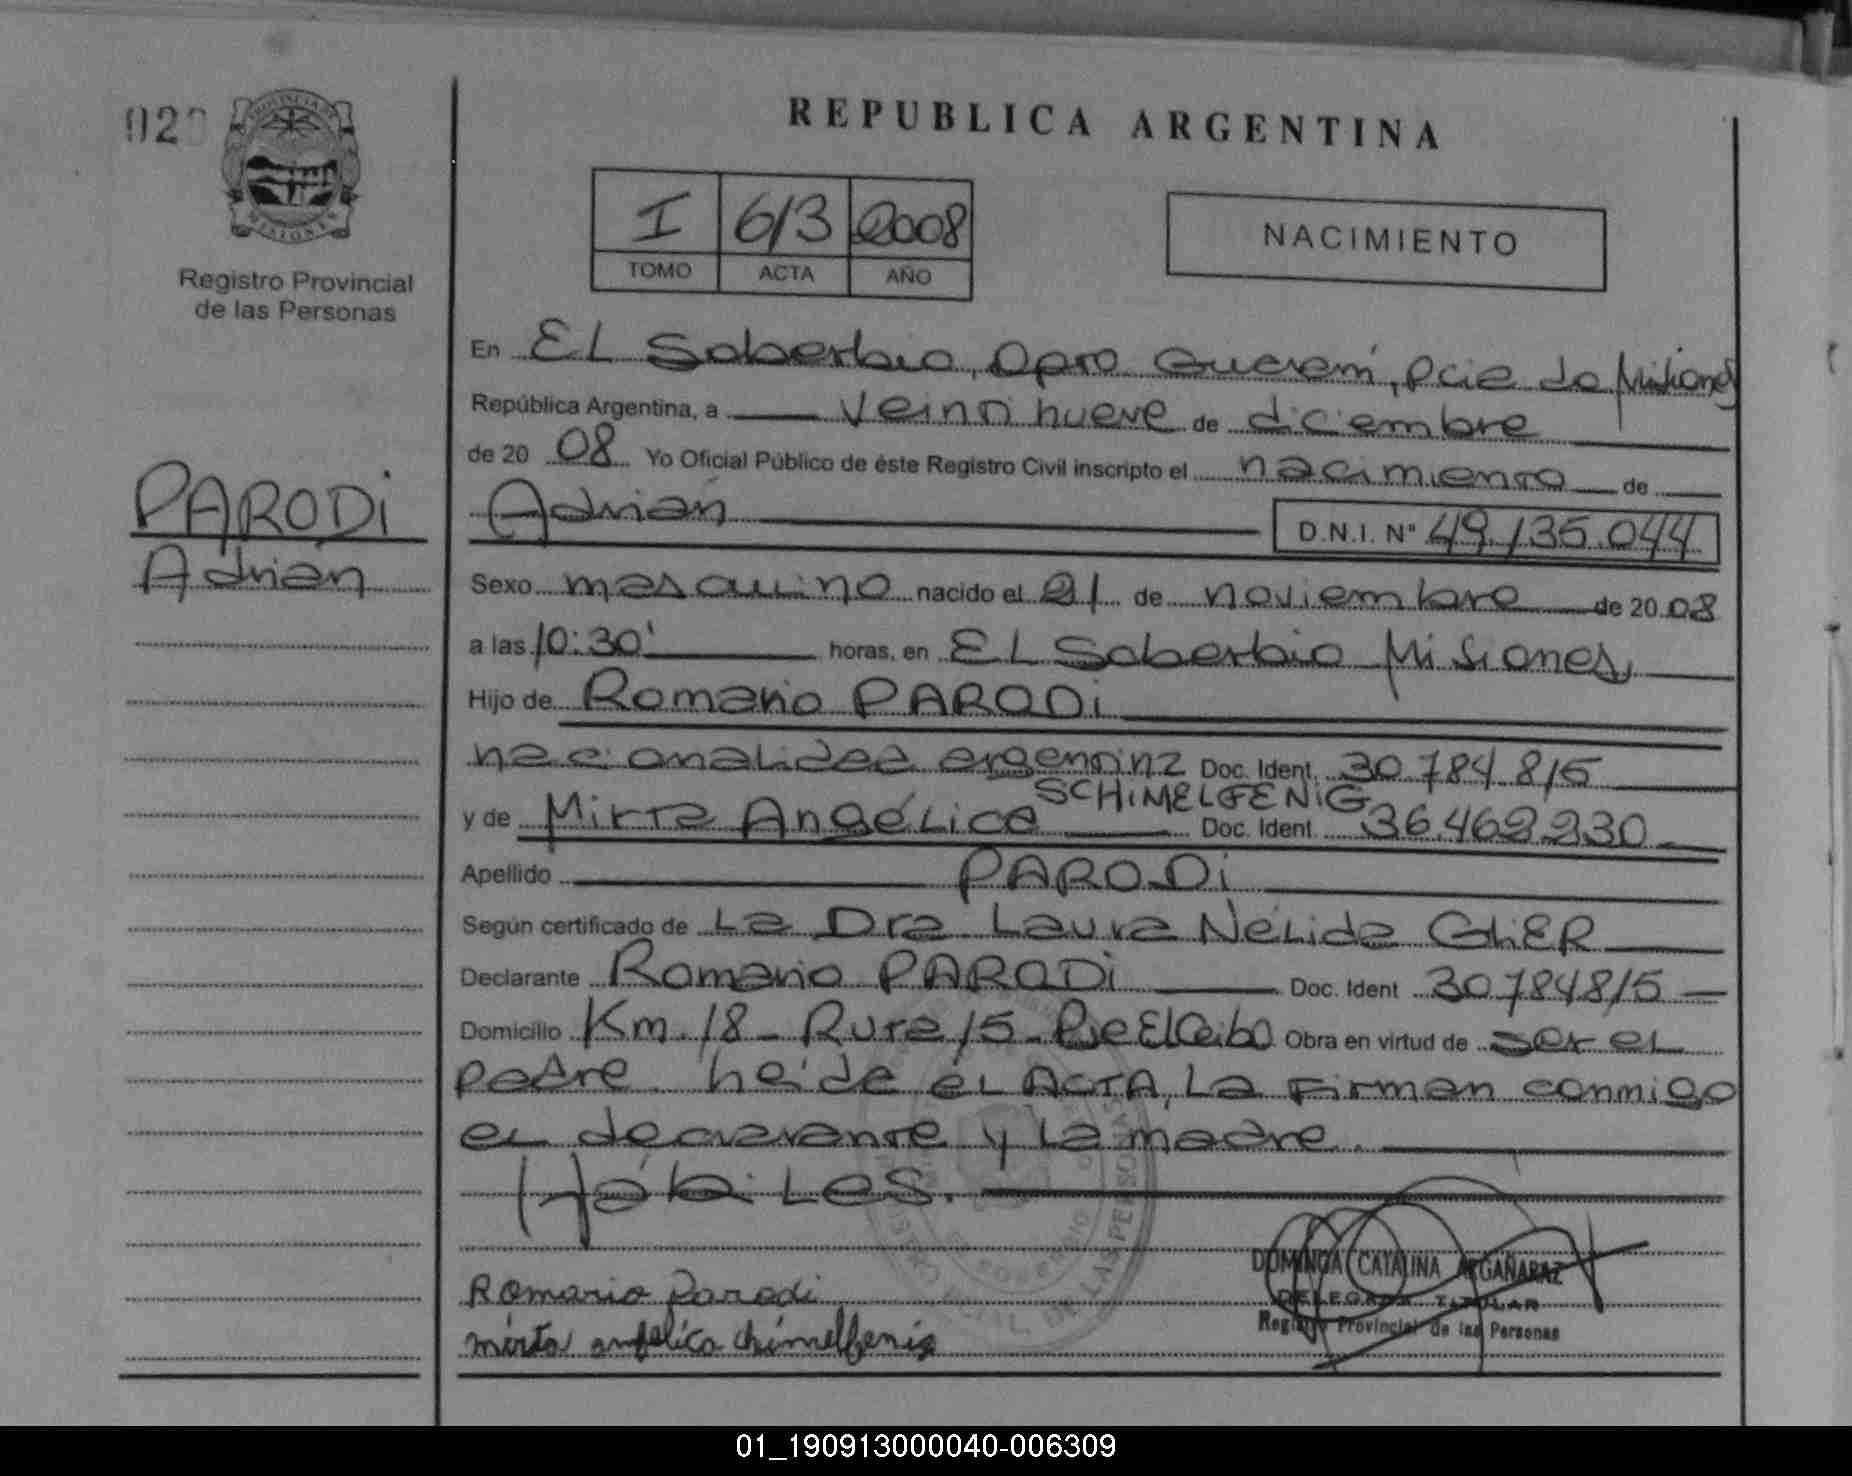 REPUBLICA ARGENTINA
02
PROVINCIA DE
MISIONES
Registro Provincial
de las Personas
I 613 2008
TOMO ACTA AÑO
NACIMIENTO
En EL Soberbio, Dpto Guaraní, Pcia de Misiones
República Argentina, a veintinueve de diciembre
de 20 08 Yo Oficial Público de éste Registro Civil inscripto el nacimiento de
PARODI
Adrián
Adrián D.N.I. N° 49.135.044
Sexo masculino nacido el 21 de noviembre de 20 08
a las 10:30' horas, en EL Soberbio Misiones
Hijo de Romario PARODI
nacionalidad argentina Doc. Ident. 30.784.815
y de Mirta Angélica SCHIMELFENIG Doc. Ident. 36.462.230
Apellido PARODI
Según certificado de La Dra Laura Nélida GLIER
Declarante Romario PARODI Doc. Ident 30.784815
Domicilio Km. 18 - Ruta 15 - Pje El Ceibo Obra en virtud de ser el
padre. heida el ACTA, La Firman conmigo
el declarante y La madre.
Hábiles.
Romario Parodi
mirta angelica chimelfenig
DOMINGA CATALINA ARGAÑARAZ
DELEGADA TITULAR
Registro Provincial de las Personas
01_190913000040-006309